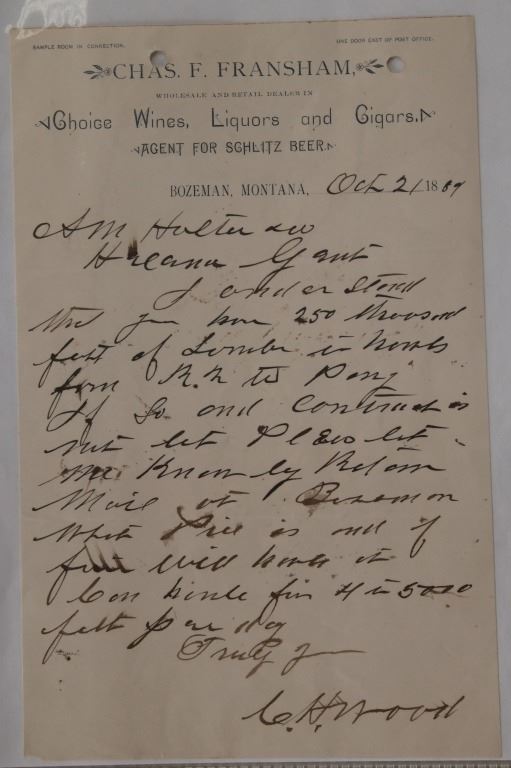 SAMPLE ROOM IN CONNECTION.
ONE DOOR EAST OF POST OFFICE.
CHAS. F. FRANSHAM,
WHOLESALE AND RETAIL DEALER IN
Choice Wines, Liquors and Cigars.
AGENT FOR SCHLITZ BEER.
BOZEMAN, MONTANA, Oct 21 1889
A M Holter &co
Helena Gent
I under stand
that you have 250 thousand
feet of Lumber to
from R.R to Pony
If So and Contract is
not let Pleas let
me Know by Return
Mail at Bozeman
What Price is and if
you will it
Can for 4 to 5000
feet par day
Truly
C. H. Wood